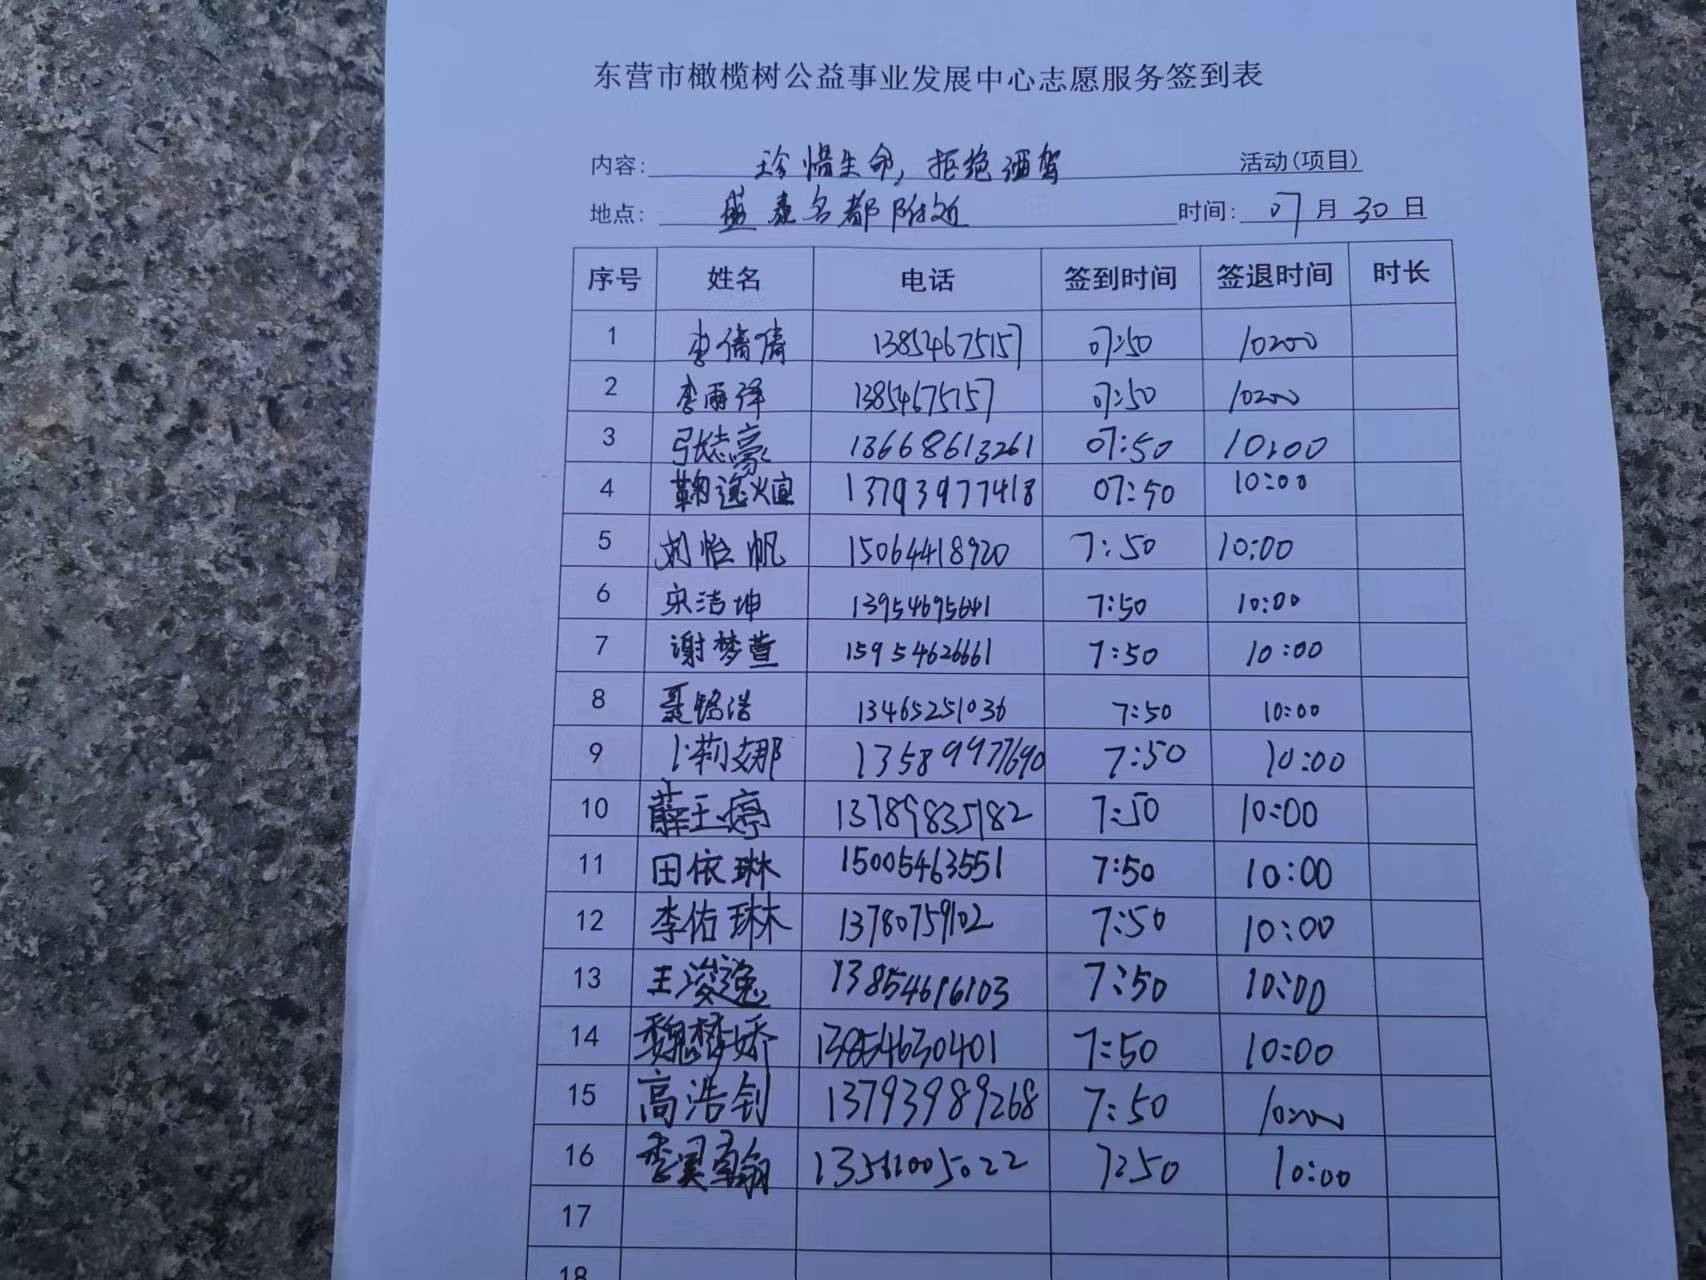 东营市橄榄树公益事业发展中心志愿服务签到表
内容: 珍惜生命,拒绝酒驾 活动(项目)
地点: 盛泰名都附近 时间: 07月30日
序号 姓名 电话 签到时间 签退时间 时长
1 李倩倩 13854675157 07:50 10:00
2 李雨泽 13854675157 07:50 10:00
3 张志豪 13668613261 07:50 10:00
4 鞠逸煊 13793977418 07:50 10:00
5 刘怡帆 15064418920 7:50 10:00
6 宋洁坤 13954695641 7:50 10:00
7 谢梦萱 15954626661 7:50 10:00
8 聂铭浩 13465251036 7:50 10:00
9 卜莉娜 13589977690 7:50 10:00
10 薛王婷 13789835182 7:50 10:00
11 田依琳 15005463551 7:50 10:00
12 李佑琳 13780759102 7:50 10:00
13 王浚逸 13854616103 7:50 10:00
14 魏梦娇 13854630401 7:50 10:00
15 高浩钊 13793989268 7:50 10:00
16 13561005022 7:50 10:00
17
18